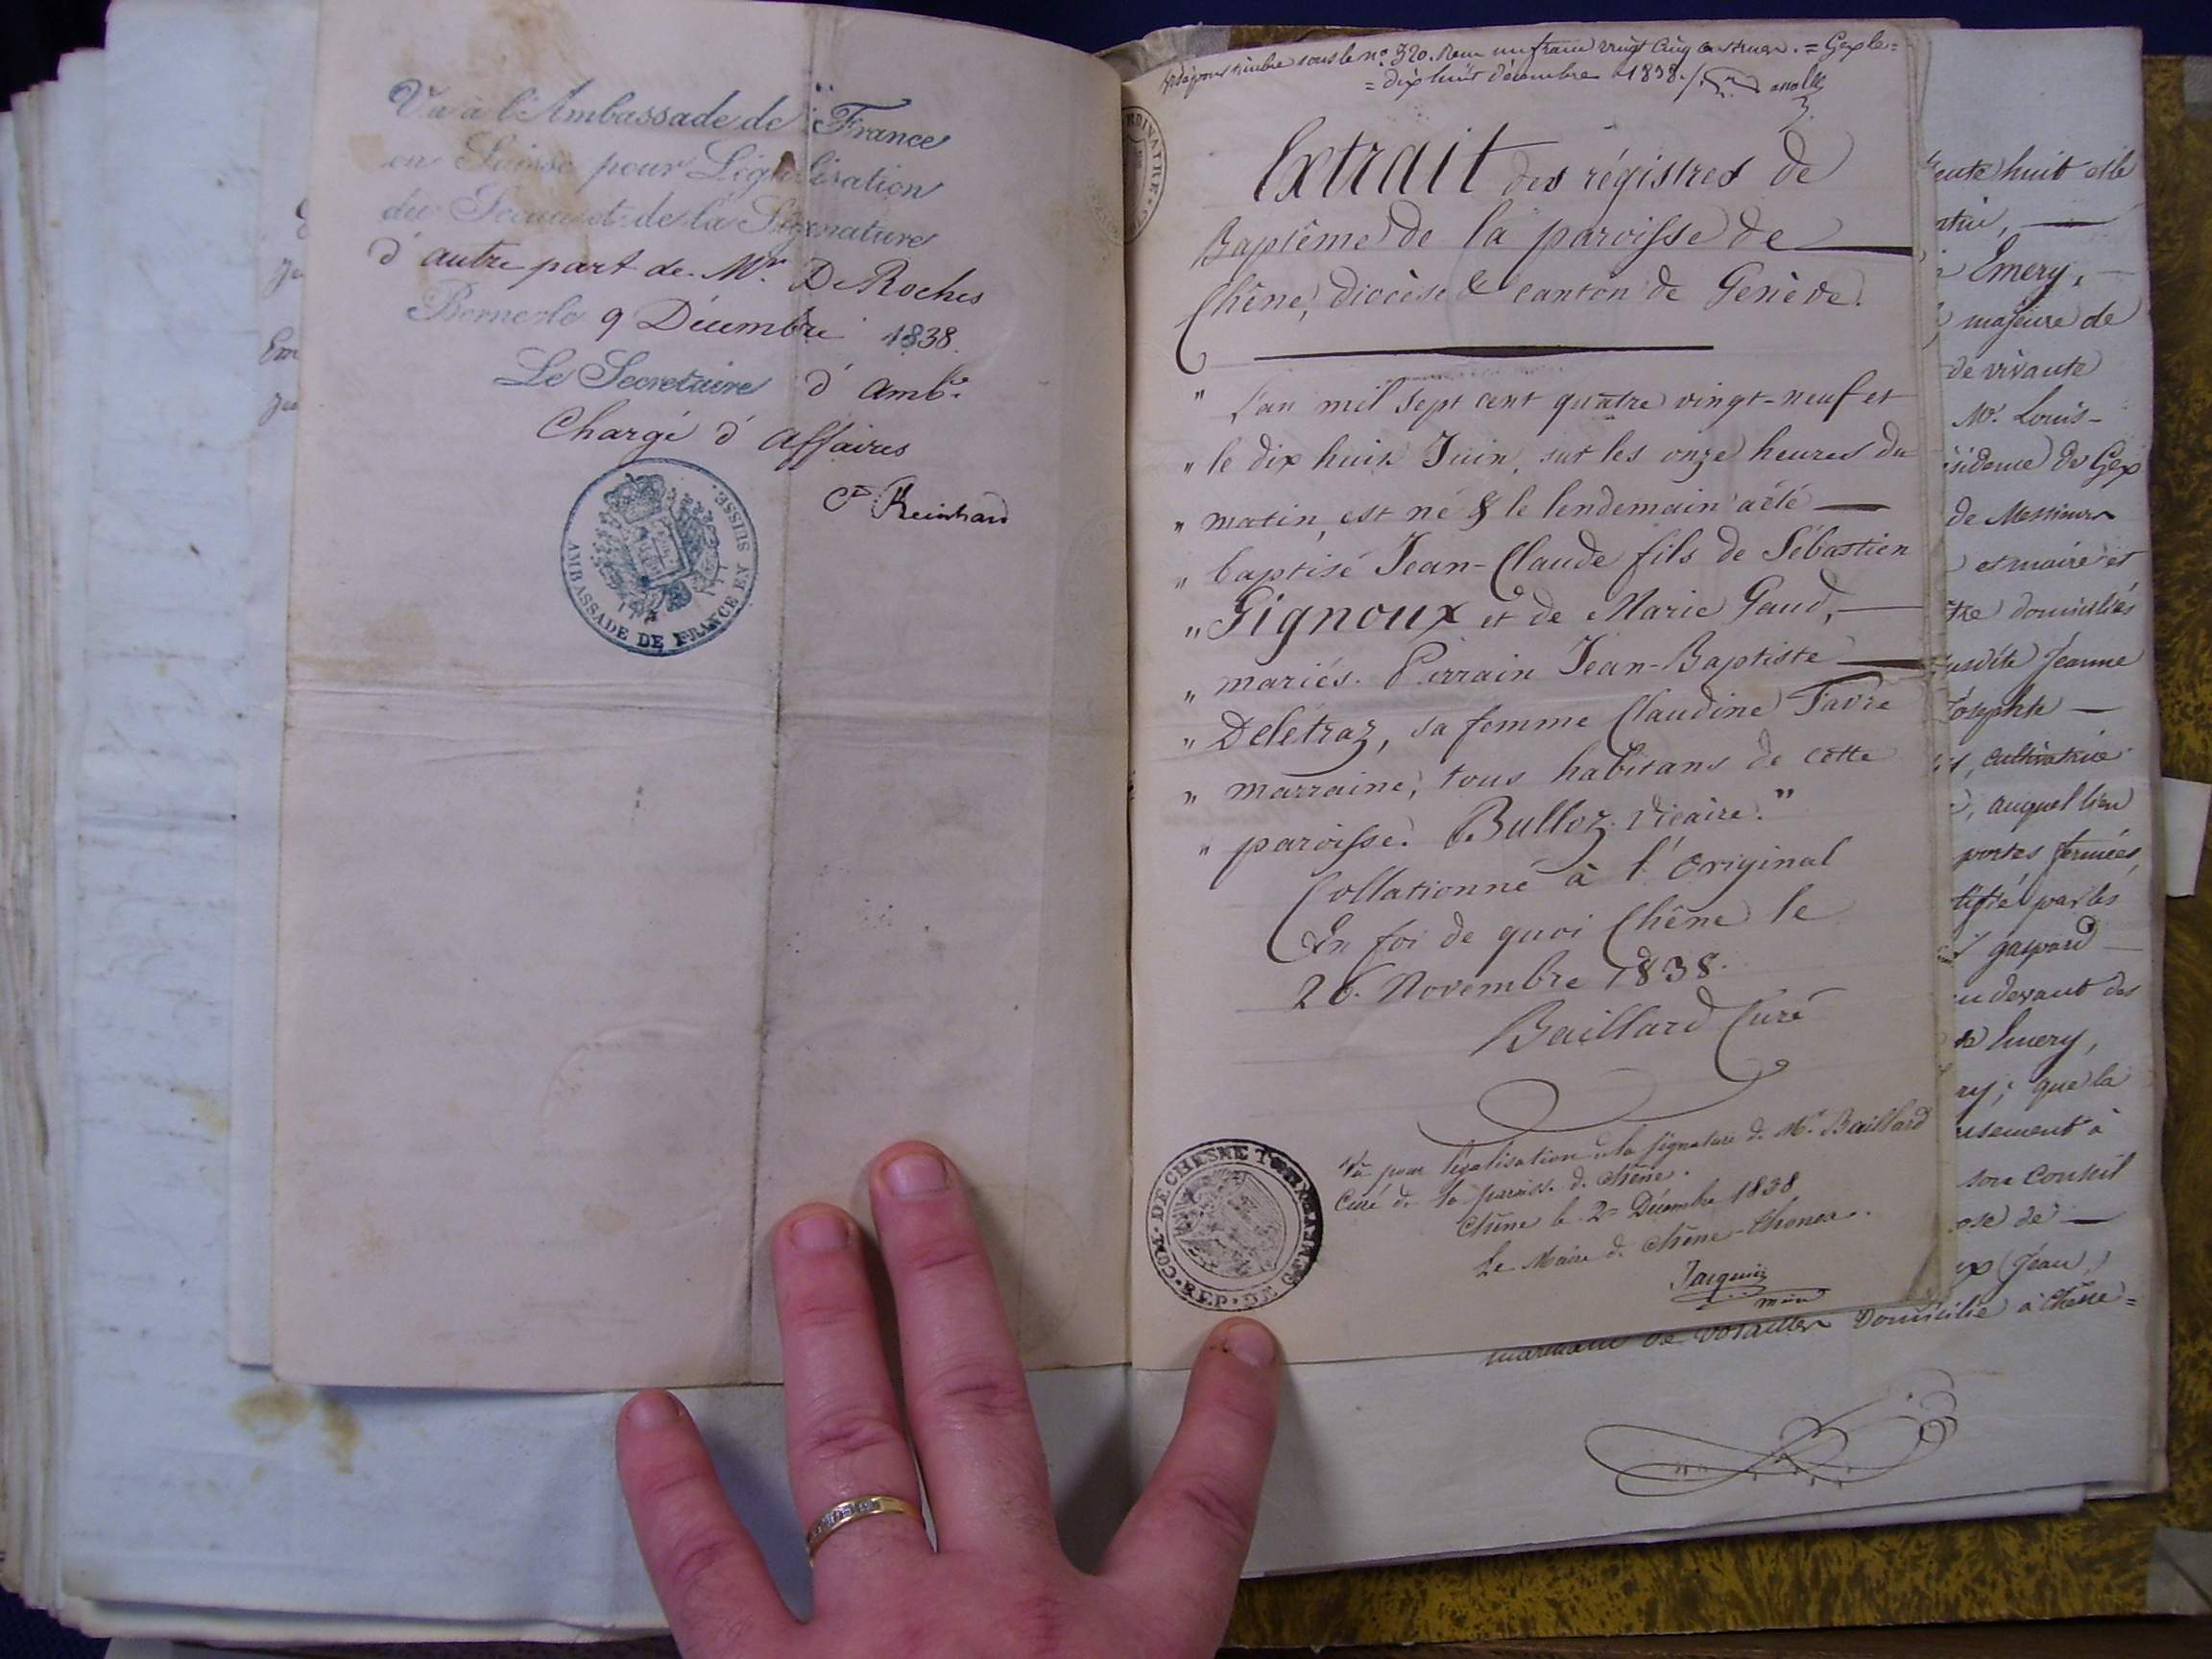 Vu à l'Ambassade de France
en Suisse pour Légalisation
de la Signature
d'autre part de Mr. De Roches
Berne le 9 Décembre 1838.
Le Secretaire d'amb.e
Chargé d'affaires
Ct Reinhard
AMBASSADE DE FRANCE EN SUISSE.
timbre sous le no. 320. Reçu un franc vingt cinq centimes. = Gex le =
= dix huit décembre 1838.
Extrait des régistres de
Baptême de la paroisse de
Chêne, diocèse & canton de Genève.
" L'an mil sept cent quatre vingt-neuf et
" le dix huit Juin, sur les onze heures du
" matin, est né & le lendemain a été
" baptisé Jean-Claude fils de Sébastien
" Gignoux et de Marie Gaud,
" mariés. Parrain Jean-Baptiste
" Delétraz, sa femme Claudine Favre
" marraine, tous habitans de cette
" paroisse. Bulloz vicaire."
Collationné à l'original
En foi de quoi Chêne le
26. Novembre 1838.
Baillard Curé
Vu pour légalisation de la signature de Mr. Baillard
Curé de la paroisse de Chêne.
Chêne le 2 Décembre 1838
Le Maire de Chêne-Thonex.
Jacquin
maire
COM. DE CHESNE REP. DE
ente huit et le
Emery,
majeure de
de vivante
Mr. Louis-
résidence de Gex
de Messieurs
et maire et
domiciliés
susdite Jeanne
Josephte
cultivatrice
auquel lieu
portes fermées,
par les
gaspard
au devant des
Emery,
que la
son conseil
ose de
(Jean,)
marchand de volailles Domicilié à Chêne =